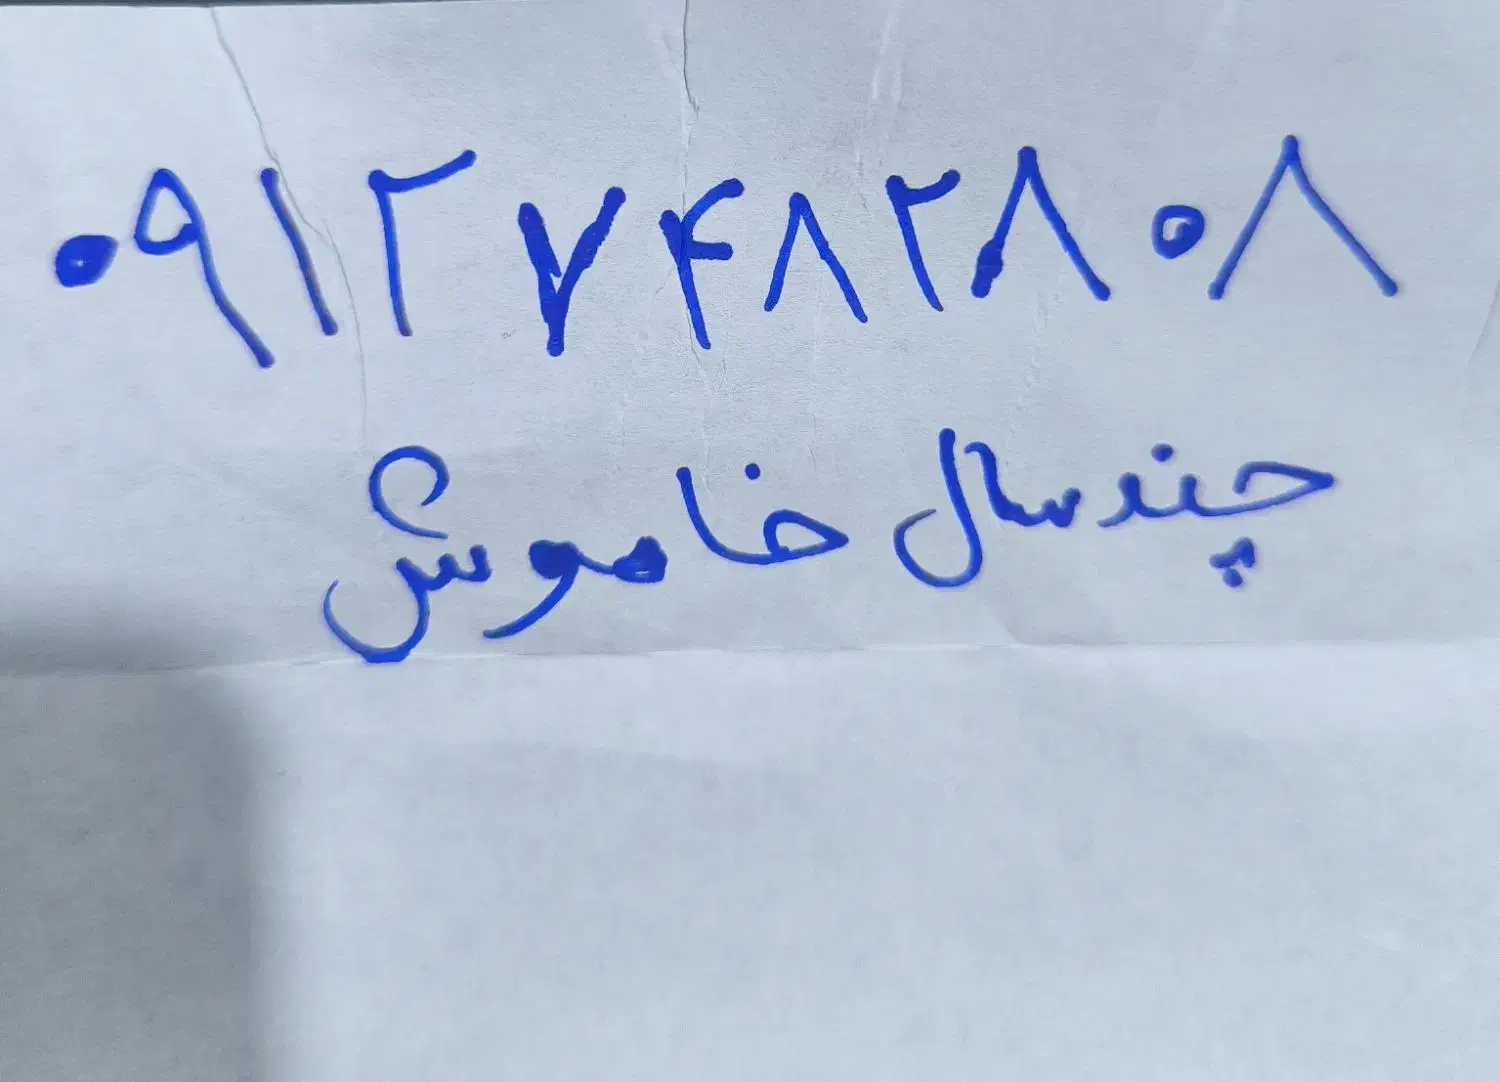 ۰۹۱۲۷۴۸۲۸۰۸
چند سال خاموش